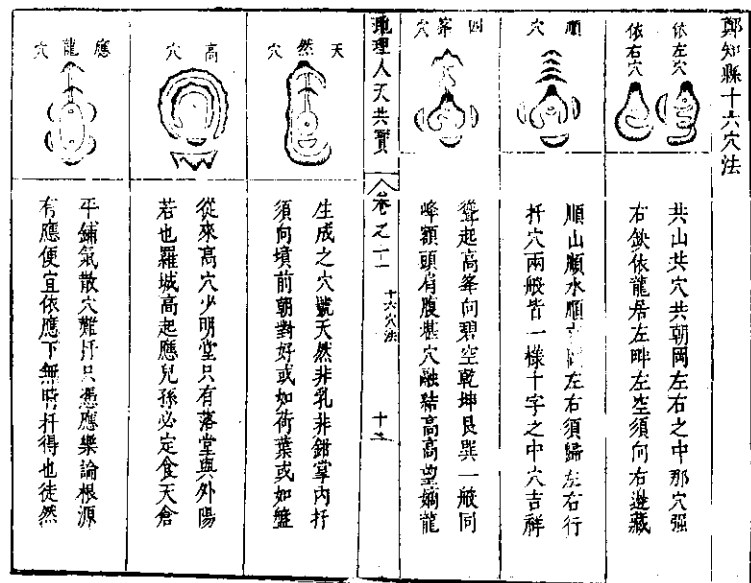 鄭知縣十六穴法
依左穴
依右穴
共山共穴共朝岡左右之中那穴强
右缺依龍居左畔左空須向右邊藏
順穴
順山順水順 左右須歸左右行
扦穴兩般皆一樣十字之中穴吉祥
四峯穴
聳起高峯向碧空乾坤艮巽一般同
峰額頭肩腹甚穴融結高高望嫡龍
地理人天共寶
卷之十一
十六穴法
天然穴
生成之穴號天然非乳非鉗掌內扦
須向墳前朝對好或如荷葉或如盤
高穴
從來高穴少明堂只有落堂與外陽
若也羅城高起應兒孫必定食天倉
應龍穴
平鋪氣散穴難扦只憑應樂論根源
有應便宜依應下無時扦得也徒然